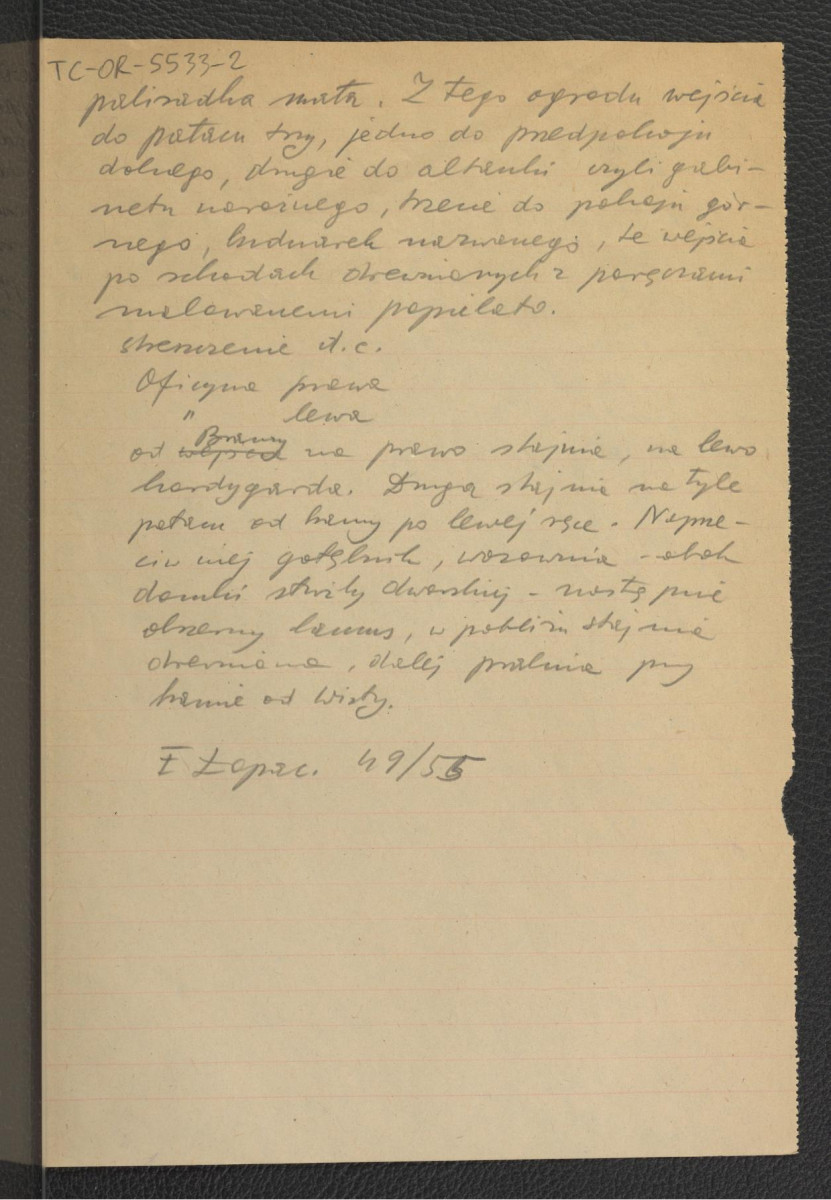 TC-OR-5533-2
palisadka mała. Z tego ogrodu wejścia
do pałacu trzy, jedno do przedpokoju
dolnego, drugie do altanki czyli gabi-
netu narożnego, trzecie do pokoju gór-
nego, lusdnarek nazwanego, te wejścia
po schodach drewnianych z poręczami
malowanemi popielato.
streszczenie d.c.
Oficyna prawa
" lewa
od wejścia Bramy na prawo stajnia, na lewo
kordygarda. Druga stajnia na tyle
pałacu od bramy po lewej ręce. Naprze-
ciw niej gołębnik, wozownia - obok
domki służby dworskiej - następnie
obszerny lamus, w pobliżu stajnia
drewniana, dalej pralnia przy
bramie od Wisły.
F Łopac. 49/55